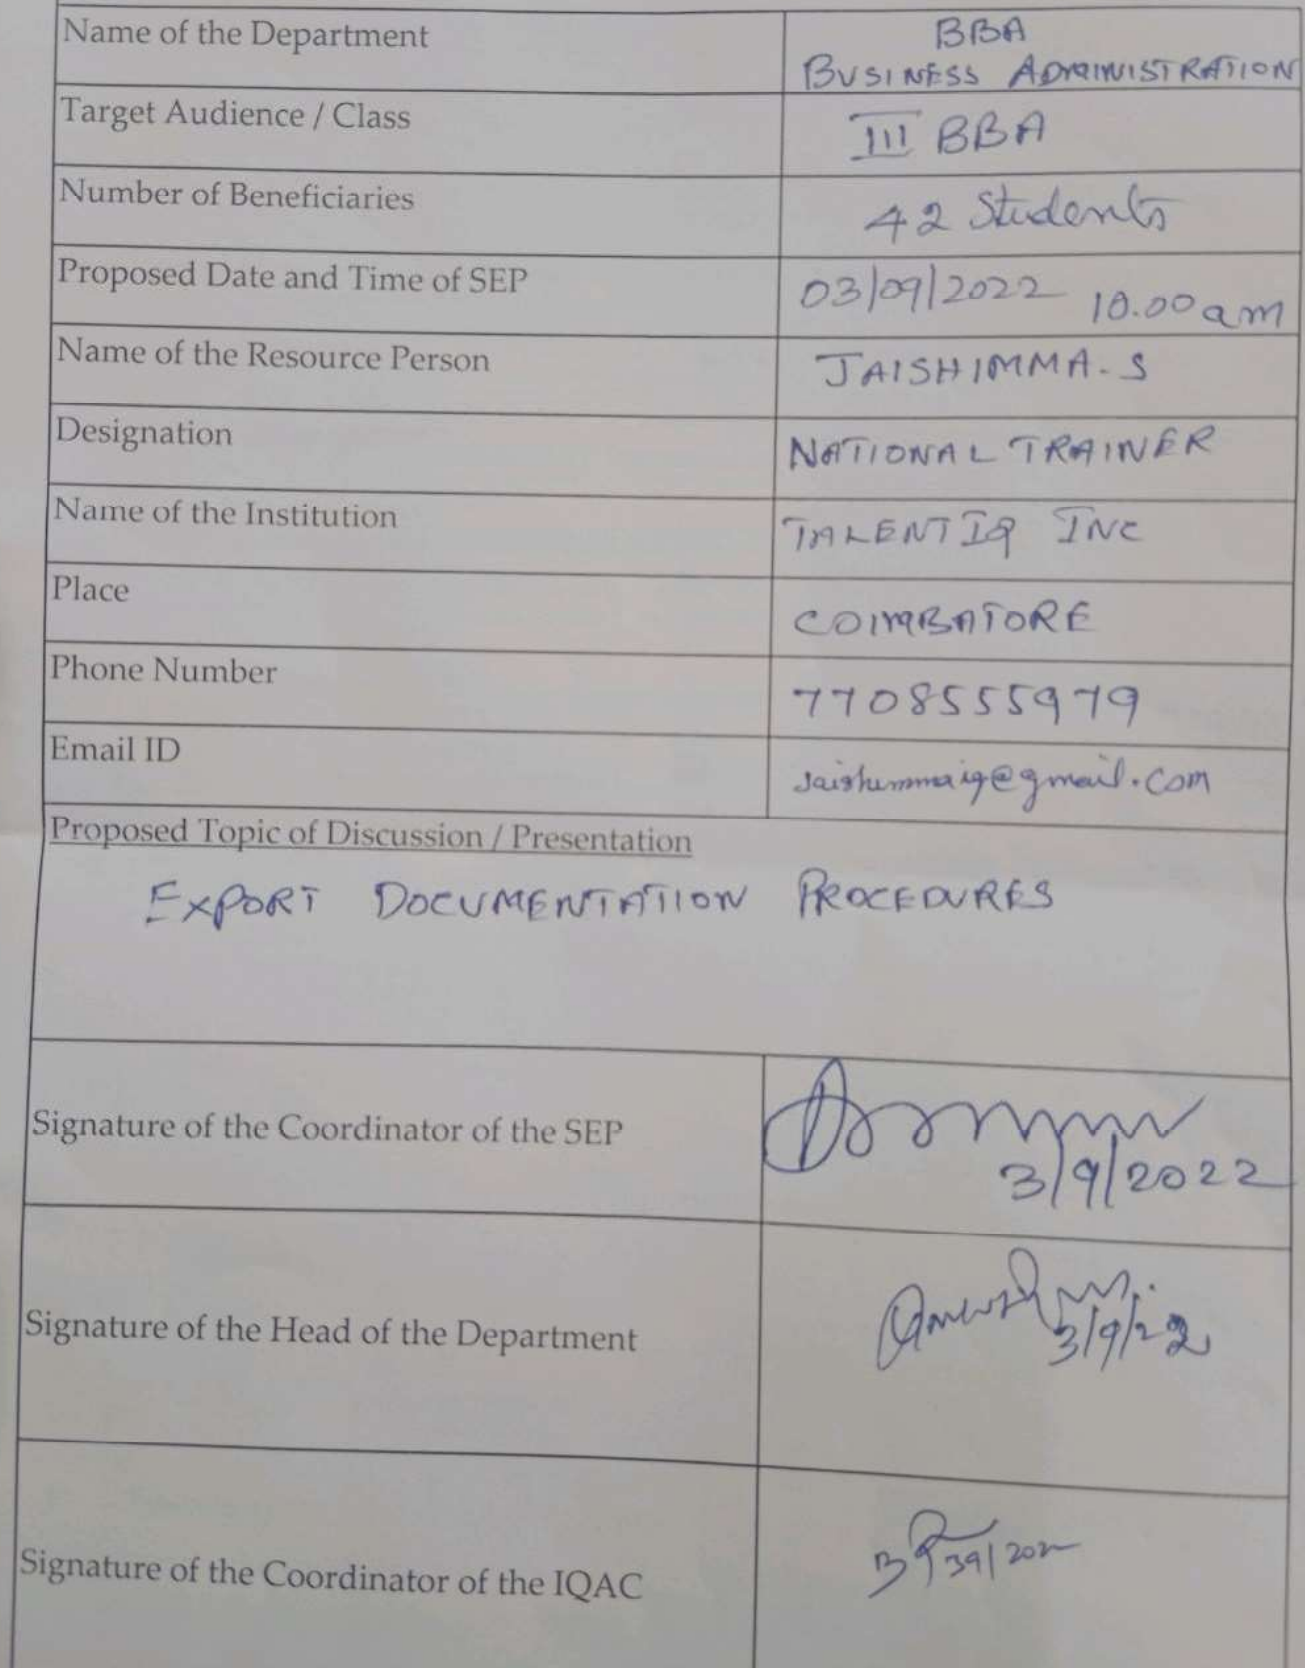 Name of the Department
BBA
BUSINESS ADMINISTRATION
Target Audience / Class
III BBA
Number of Beneficiaries
42 Students
Proposed Date and Time of SEP
03/09/2022 10.00 am
Name of the Resource Person
JAISHIMMA. S
Designation
NATIONAL TRAINER
Name of the Institution
TALENT IQ INC
Place
COIMBATORE
Phone Number
7708555979
Email ID
jaishimmaiq@gmail.com
Proposed Topic of Discussion / Presentation
EXPORT DOCUMENTATION PROCEDURES
Signature of the Coordinator of the SEP
3/9/2022
Signature of the Head of the Department
3/9/22
Signature of the Coordinator of the IQAC